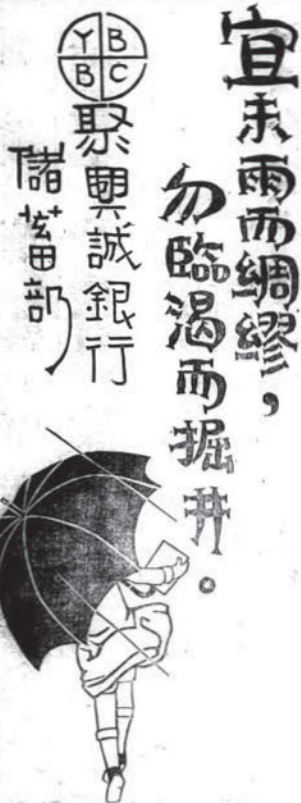 宜未雨而綢繆，
勿臨渴而掘井。
YB
BC
聚興誠銀行
儲蓄部